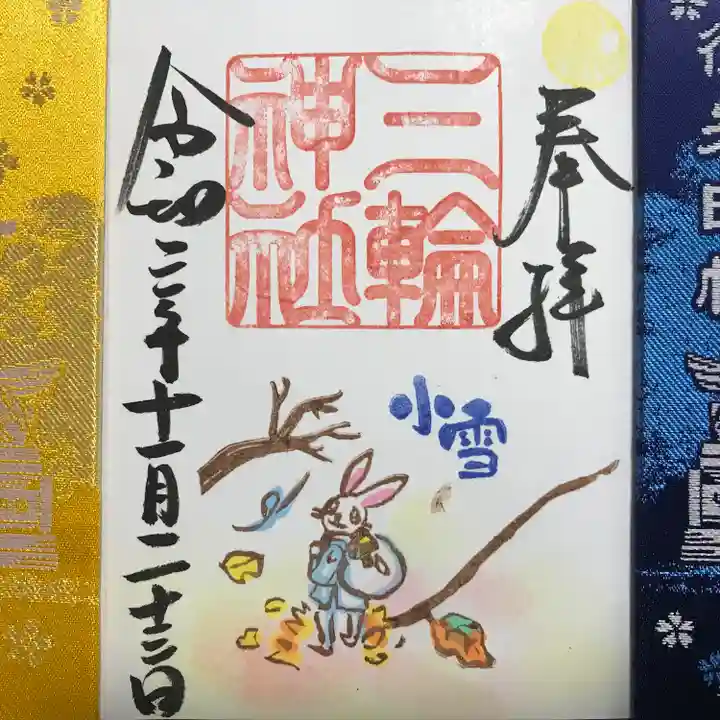 奉拝
三輪
神社
小雪
令和三年十一月二十二日
御朱印帳